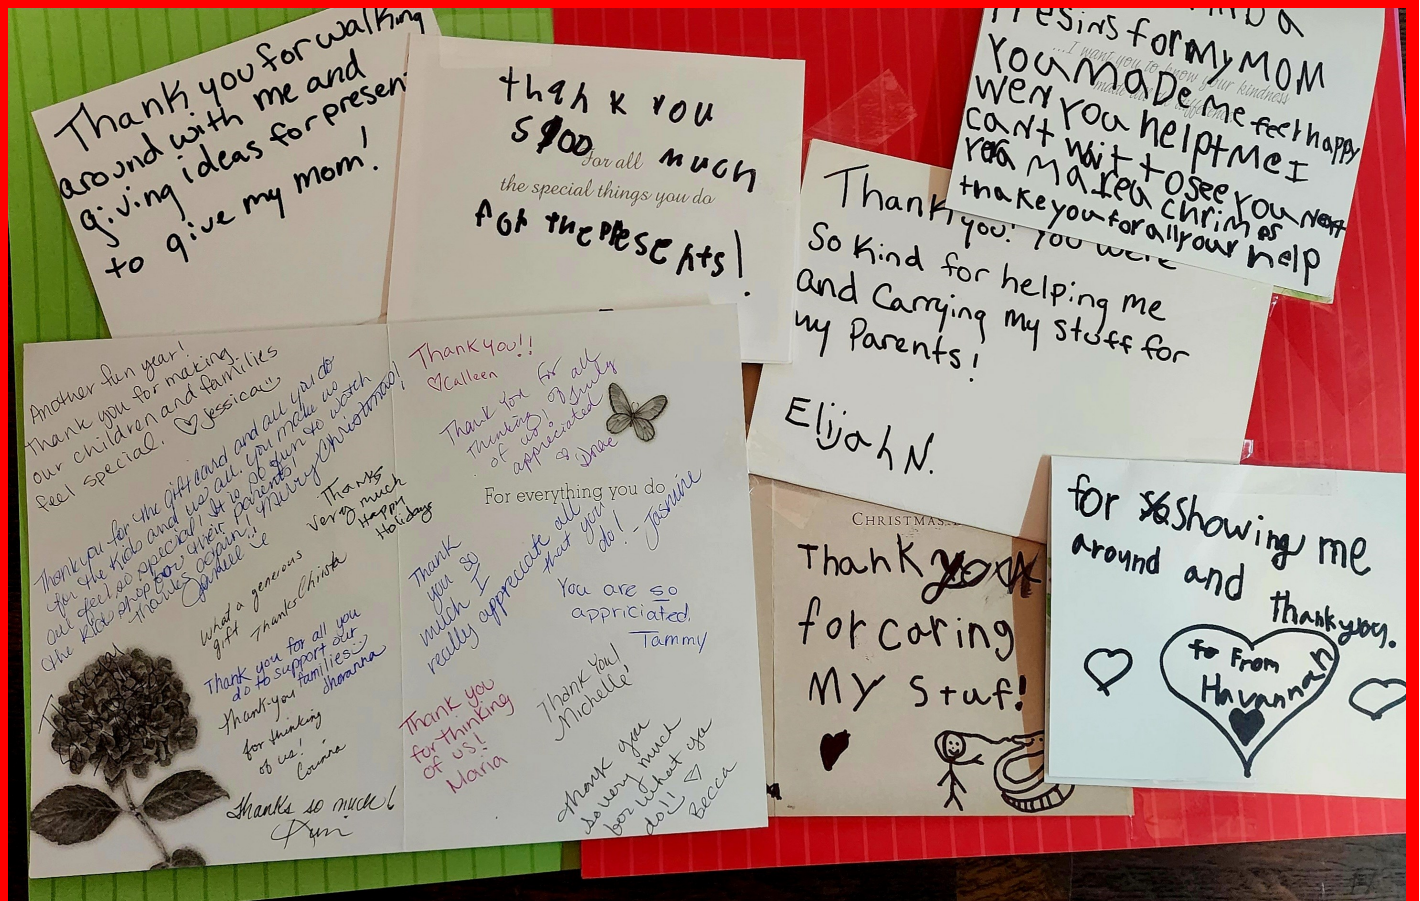 Thank you for walking
around with me and
giving ideas for present
to give my mom!
thank you
so much
for all
the special things you do
for the presents!
resins for my MOM
...I want you to know your kindness
You maDe me feel happy
made
wen you helpt me I
can't wait to see you next
yea marea chrimas
thakeyou for all your help
Thank you! You were
so kind for helping me
and carrying my stuff for
my Parents!
Elijah N.
Another fun year!
Thank you for making
our children and families
feel special. ♡ Jessica
Thank you for the gift card and all you do
for the kids and us all. You make us
all feel so special! It is so fun to watch
the kids shop for their parents!
Thanks again!! Merry Christmas!
Thanks
very much
Happy
Holidays
What a generous
gift Thanks Christa
Thank you for all you
do to support our
families
Thank-you
for thinking
of us!
Thanks so much!
Thank you!!
♡ Calleen
Thank you for all
thinking of
of us! truly
appreciated
For everything you do
Thank
you so
much I
really appreciate all
that you
do! - Jasmine
You are so
appriciated.
Tammy
Thank you
for thinking
of us!
Maria
Thank You!
Michelle
Thank you
so very much
for what you
do!! ♡
Becca
CHRISTMAS
Thank you
for caring
My stuf!
for showing me
around and thank you.
to From
Havannah